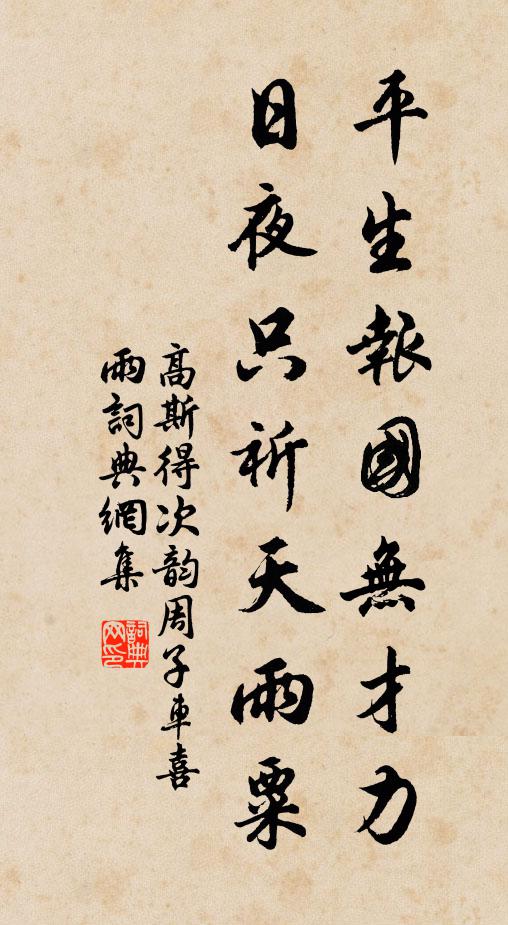 平生報國無才力
日夜只祈天雨粟
高斯得次韵周子車喜
雨詞典網集
詞典
网印